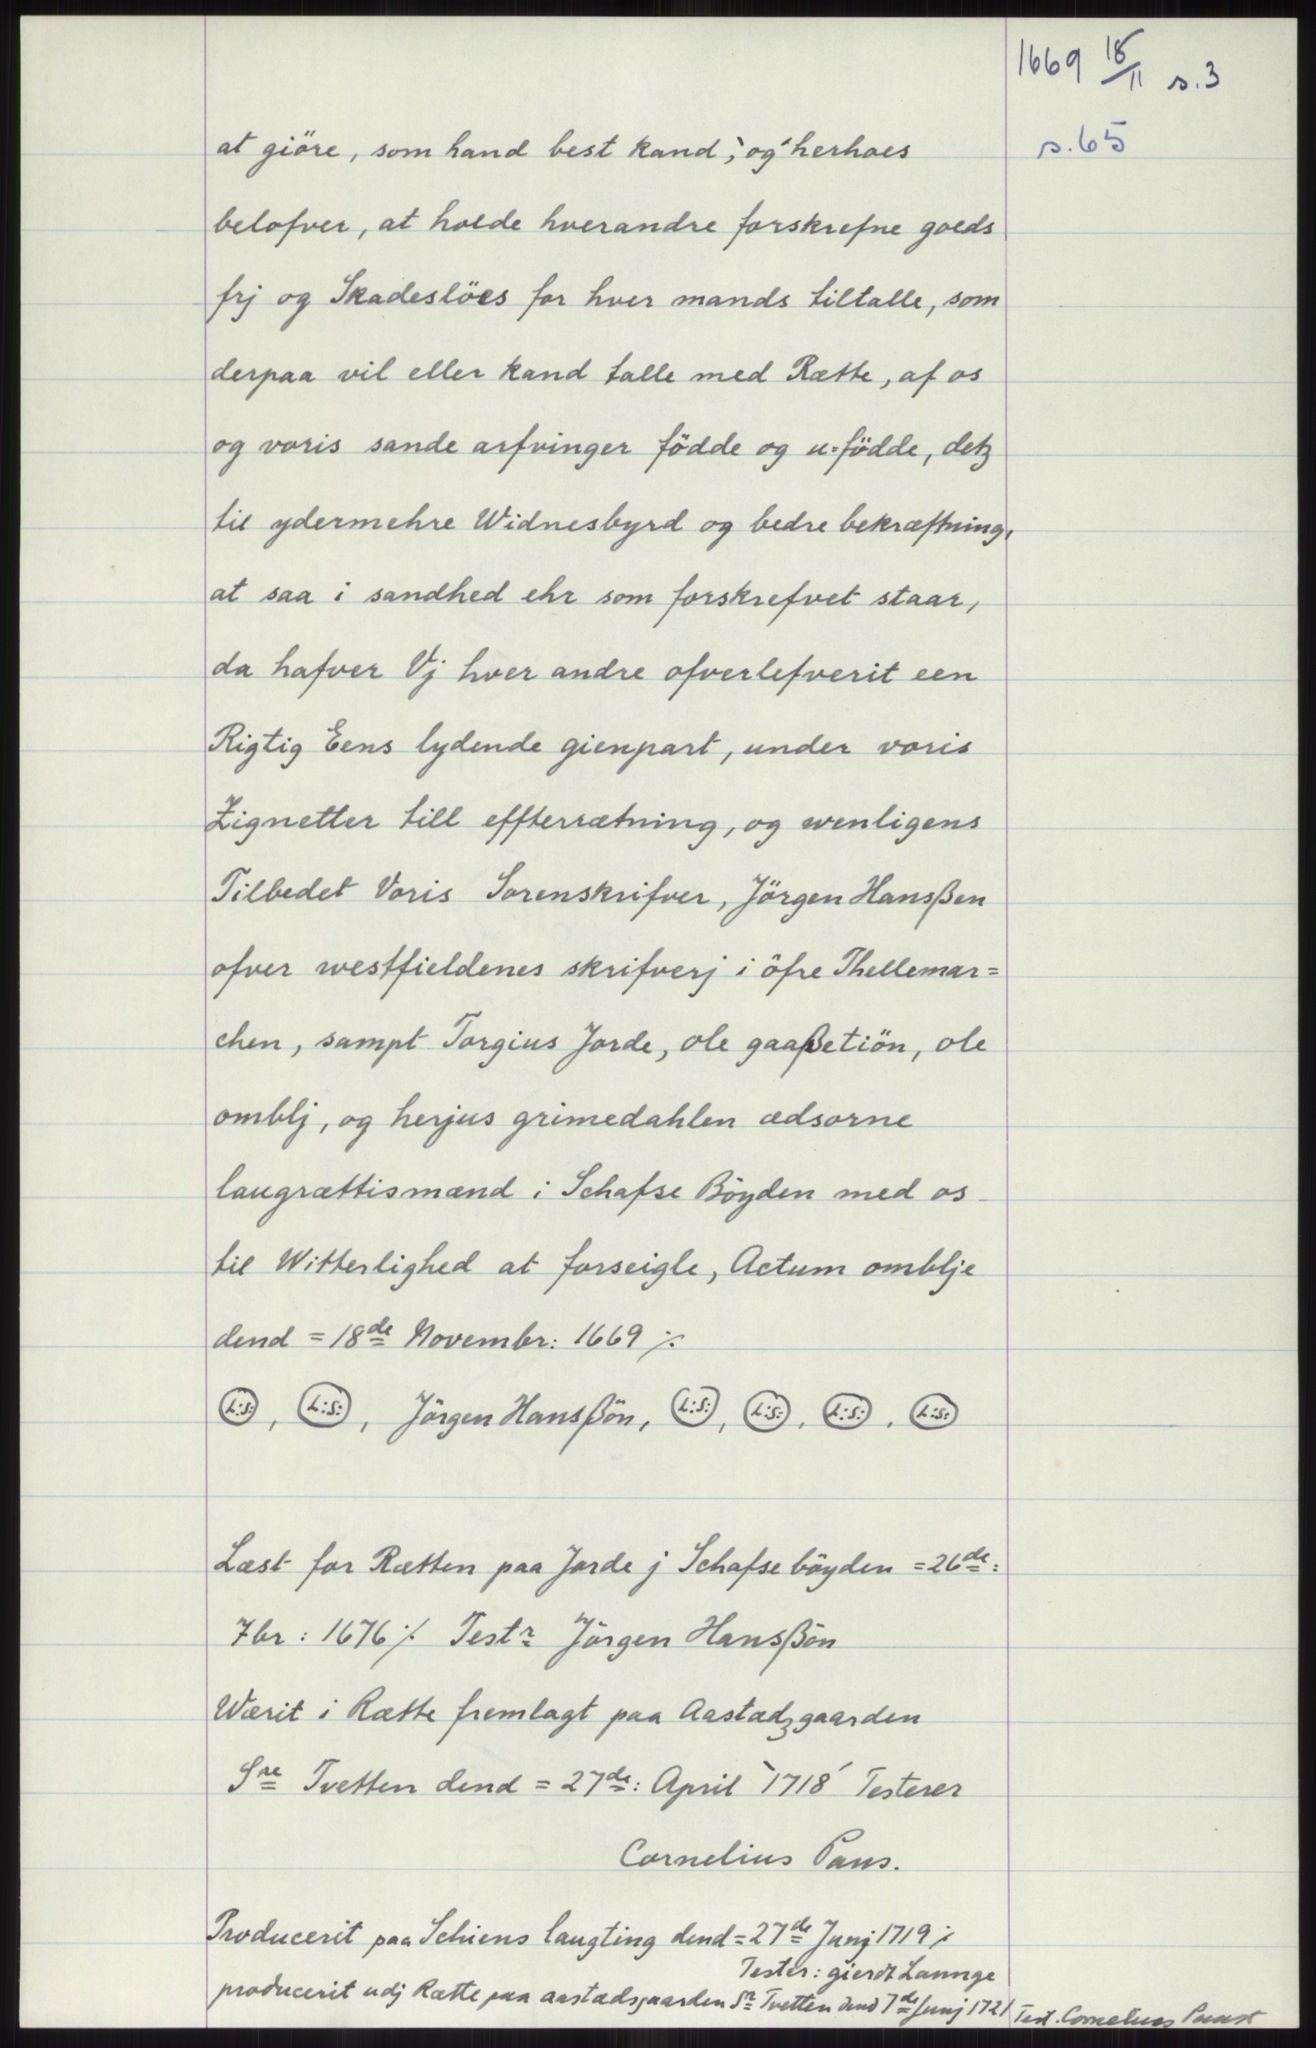 1669 18/11 s.3
s.65
at giöre, som hand best kand, og herhoes
belofver, at holde hverandre forskrefne goeds
frj og Skadeslöes for hver mands tiltalle, som
derpaa vil eller kand talle med Rætte, af os
og voris sande arfvinger födde og u=födde, detz
til ydermehre Widnesbyrd og bedre bekræftning,
at saa i sandhed ehr som forskrefvet staar,
da hafver Vj hver andre ofverlefverit een
Rigtig Eens lydende gienpart, under voris
Zignetter till effterrætning, og wenligens
Tilbedet Voris Sorenskrifver, Jörgen Hansßen
ofver westfieldenes skrifverj i öfre Thellemar=
chen, sampt Torgius Jorde, ole gaaßetiön, ole
omblj, og herjus grimedahlen ædsorne
laugrættismænd i Schafse Böyden med os
til Witterlighed at forseigle, Actum omblje
dend = 18de Novembr: 1669 ./.
L:S:, L:S:, Jörgen Hansßön, L:S:, L:S:, L:S:, L:S:
Læst for Rætten paa Jorde j Schafse böyden = 26de:
7br: 1676 ./. Testr Jörgen Hansßön
Wærit i Rætte fremlagt paa Aastædzgaarden
Sre Tvetten dend = 27de: April 1718 Testerer
Cornelius Paus.
Producerit paa Schiens laugting dend = 27de Junj 1719 ./.
Tester: gierdt Launge
producerit udj Rætte paa aastædsgaarden Sr Tvetten dend 7de Junj 1721 Test. Cornelius Paust